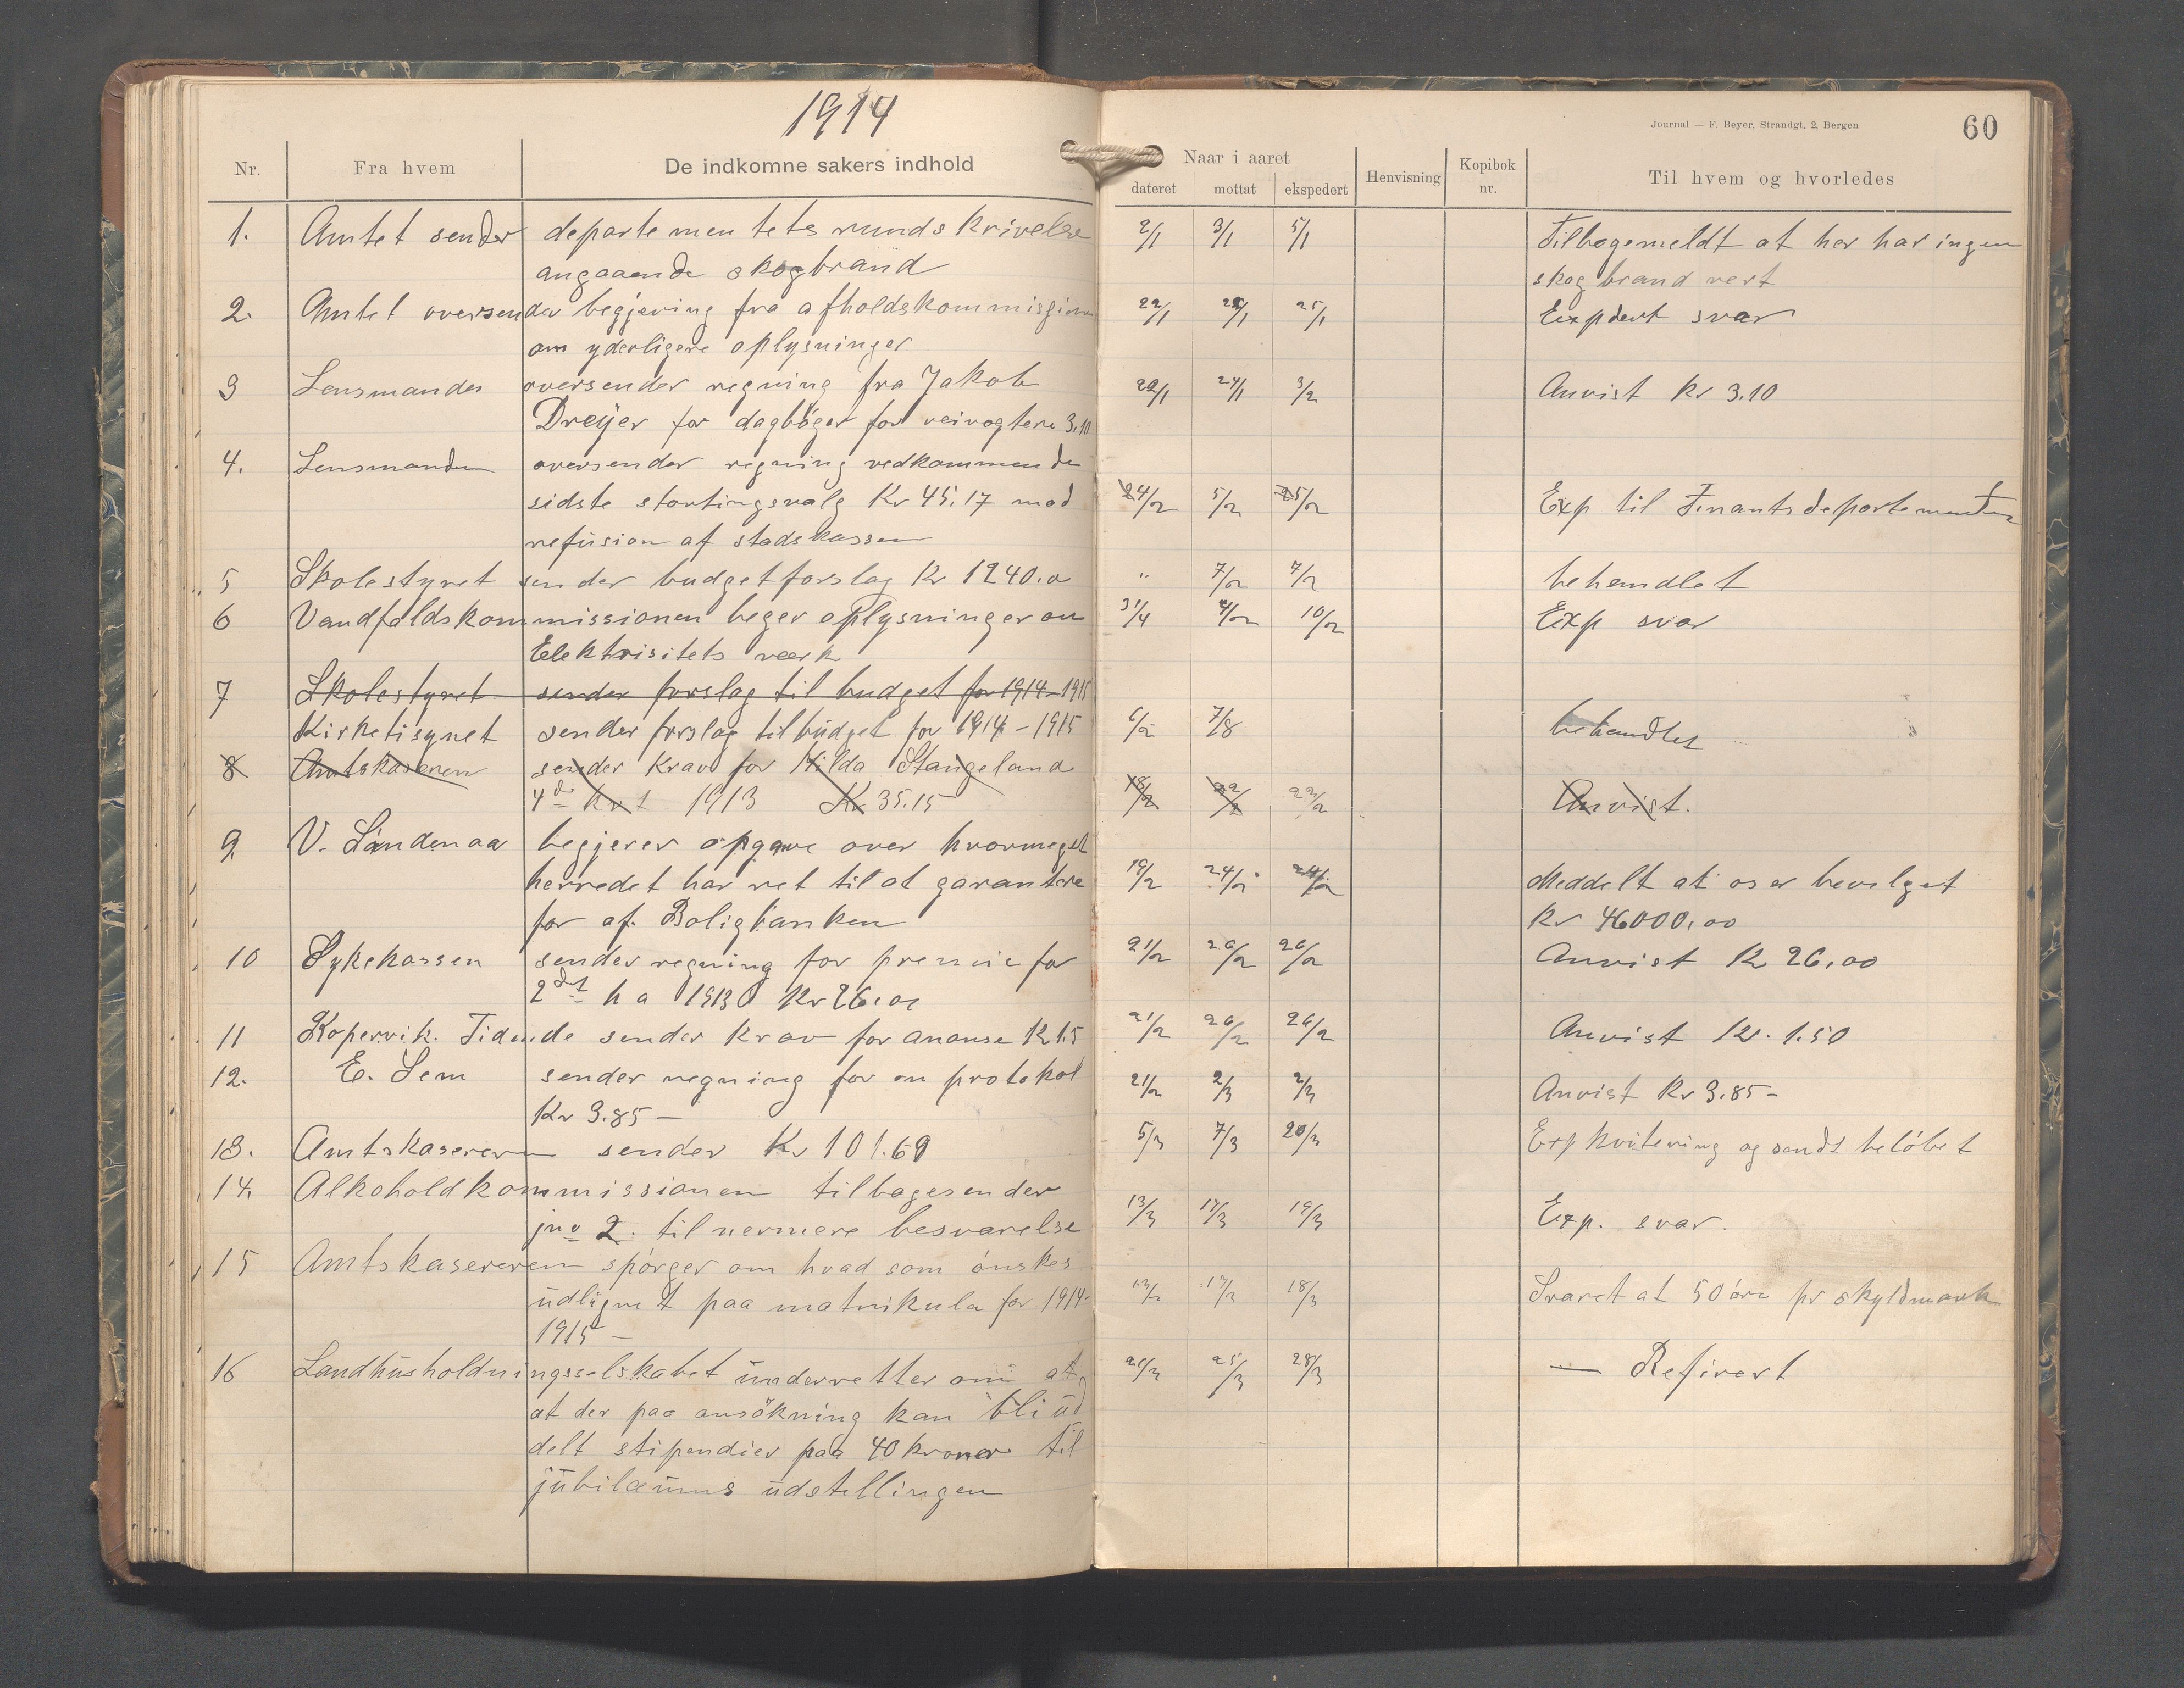 1914
Journal — F. Beyer, Strandgt, 2, Bergen
60
Nr. Fra hvem De indkomne sakers indhold Naar i aaret Henvisning Kopibok nr. Til hvem og hvorledes
dateret mottat ekspedert
1. Amtet sender departementets rundskrivelse 2/1 3/1 5/1 Tilbagemeldt at her har ingen
angaaende skogbrand skogbrand vert
2. Amtet oversender begjæring fra afholdskommission 22/1 25/1 Expdert svar
om yderligere oplysninger
3 Lensmanden oversender regning fra Jakob 22/1 24/1 3/2 Anvist Kr 3.10
Dreyer for dagbøger for veivogtere 3.10
4. Lensmanden oversender regning vedkommende
sidste stortingsvalg Kr 45.17 mod 4/2 5/2 5/2 Exp til Finantsdepartementet
refusion af stadskassen
5 Skolestyret sender budgetforslag Kr 1240.0 " 7/2 7/2 behandlet
6 Vandfaldskommissionen beger oplysninger om 31/4 4/2 10/2 Exp svar
Elektrisitets værk
7 Skolestyret sender forslag til budget for 1914-1915
Kirketisynet sender forslag til budget for 1914-1915 6/2 7/8 behandlet
8 Amtskaseren sender Krav for Hilda Stangeland
4de kvt 1913 Kr 35.15 18/2 22/2 22/2 Anvist.
9. V. Lindenaa begjerer opgave over hvormeget
herredet har ret til at garantere 19/2 24/2 24/2 Meddelt at os er bevilget
for af. Boligbanken Kr 46000,00
10 Sykekassen sender regning for premie for 21/2 26/2 26/2 Anvist Kr 26,00
2det ha 1913 Kr 26.00
11 Kopervik. Tidende sender Krav for ananse Kr 1.5 21/2 26/2 26/2 Anvist Kr. 1.50
12. E. Sem sender regning for en protokol 21/2 2/3 2/3 Anvist Kr 3.85-
Kr 3.85 —
13. Amtskasereren sender Kr 101.69 5/3 7/3 20/3 Exp kvitering og sendt beløbet
14. Alkoholdkommissionen tilbagesender 13/3 17/3 19/3 Exp. svar.
jno 2. til nermere besvarelse
15 Amtskasereren spørger om hvad som ønskes
udlignet paa matrikula for 1914- 13/3 17/3 18/3 Svaret at 50 øre pr skyldmark
1915 —
16 Landhusholdningsselskabet underretter om at 25/3 28/3 — Refirert
at der paa ansøkning kan bli ud
delt stipendier paa 40 kroner til
jubilæums udstellingen